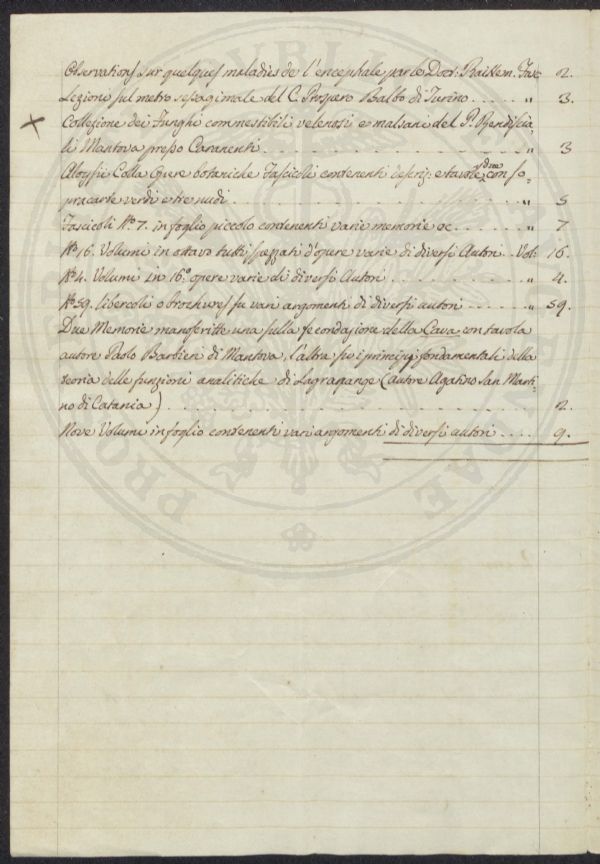 Observations sur quelques maladies de l'encephale par le Doct: Fasc 2.
Lezioni sul metro sessagimale del C. Prospero Balbo di Turino ..... " 3.
Collezione dei Funghi commestibili velenosi e malsani del P. Bendiscio-
li Mantova presso Caranenti ..... " 3
Aloysii Colla Opere botaniche Fascicoli contenenti descriz: e tavole due con so-
pracarte verdi e tre nudi ..... " 5
Fascicoli N.º 7. in foglio piccolo contenenti varie memorie ec ..... " 7
N.º 16. Volumi in ottavo tutti spezzati d'opere varie di diversi Autori .. Vol: 16.
N.º 4. Volumi in 16.º opere varie di diversi Autori ..... " 4.
N.º 59. libercoli o brochures su vari argomenti di diversi autori ..... " 59.
Due Memorie manoscritte una sulla fecondazione della Cara con tavola
autore Paolo Barbieri di Mantova, l'altra su i principj fondamentali della
teoria delle funzioni analitiche di Lagragange (autore Agatino San Marti-
no di Catania) ..... 2.
Nove Volumi in foglio contenenti vari argomenti di diversi autori .... 9.